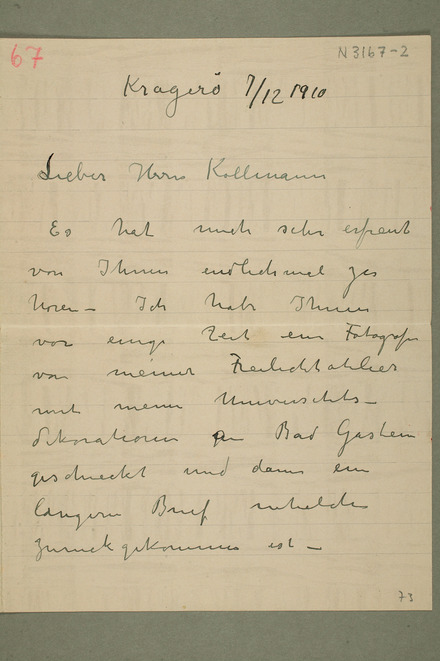 67
N 3167-2
Kragerö 7/12 1910
Lieber Herrn Kollmann
Es hat mich sehr erfreut
von Ihnen endlichmal zu
hören – Ich habe Ihnen
vor einige Zeit ein Fotografi
von meiner Freilichtatelier
mit meine Universitets-
dekorationen Bad Gastein
geschickt und dann ein
längern Brief welche
zurückgekommen ist –
73